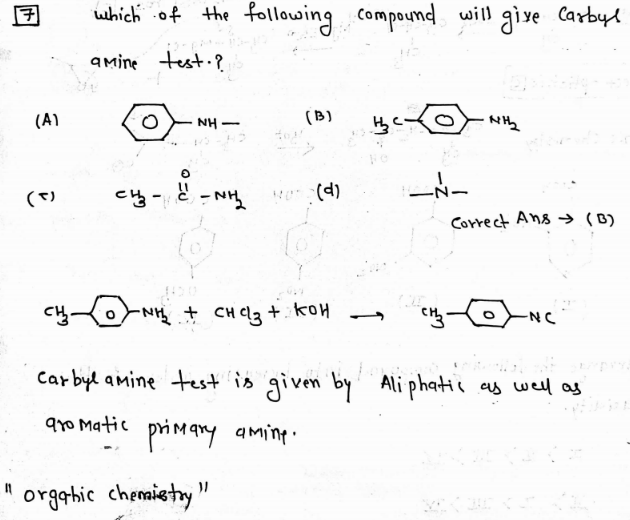 7 which of the following compound will give Carbyl
amine test.?
(A) NH— (B) H3C NH2
(c) CH3 - C - NH2 (d) —N—
O
Correct Ans → (B)
CH3 NH2 + CHCl3 + KOH → CH3 NC
Carbyl amine test is given by Aliphatic as well as
aromatic primary amine.
"organic chemistry"